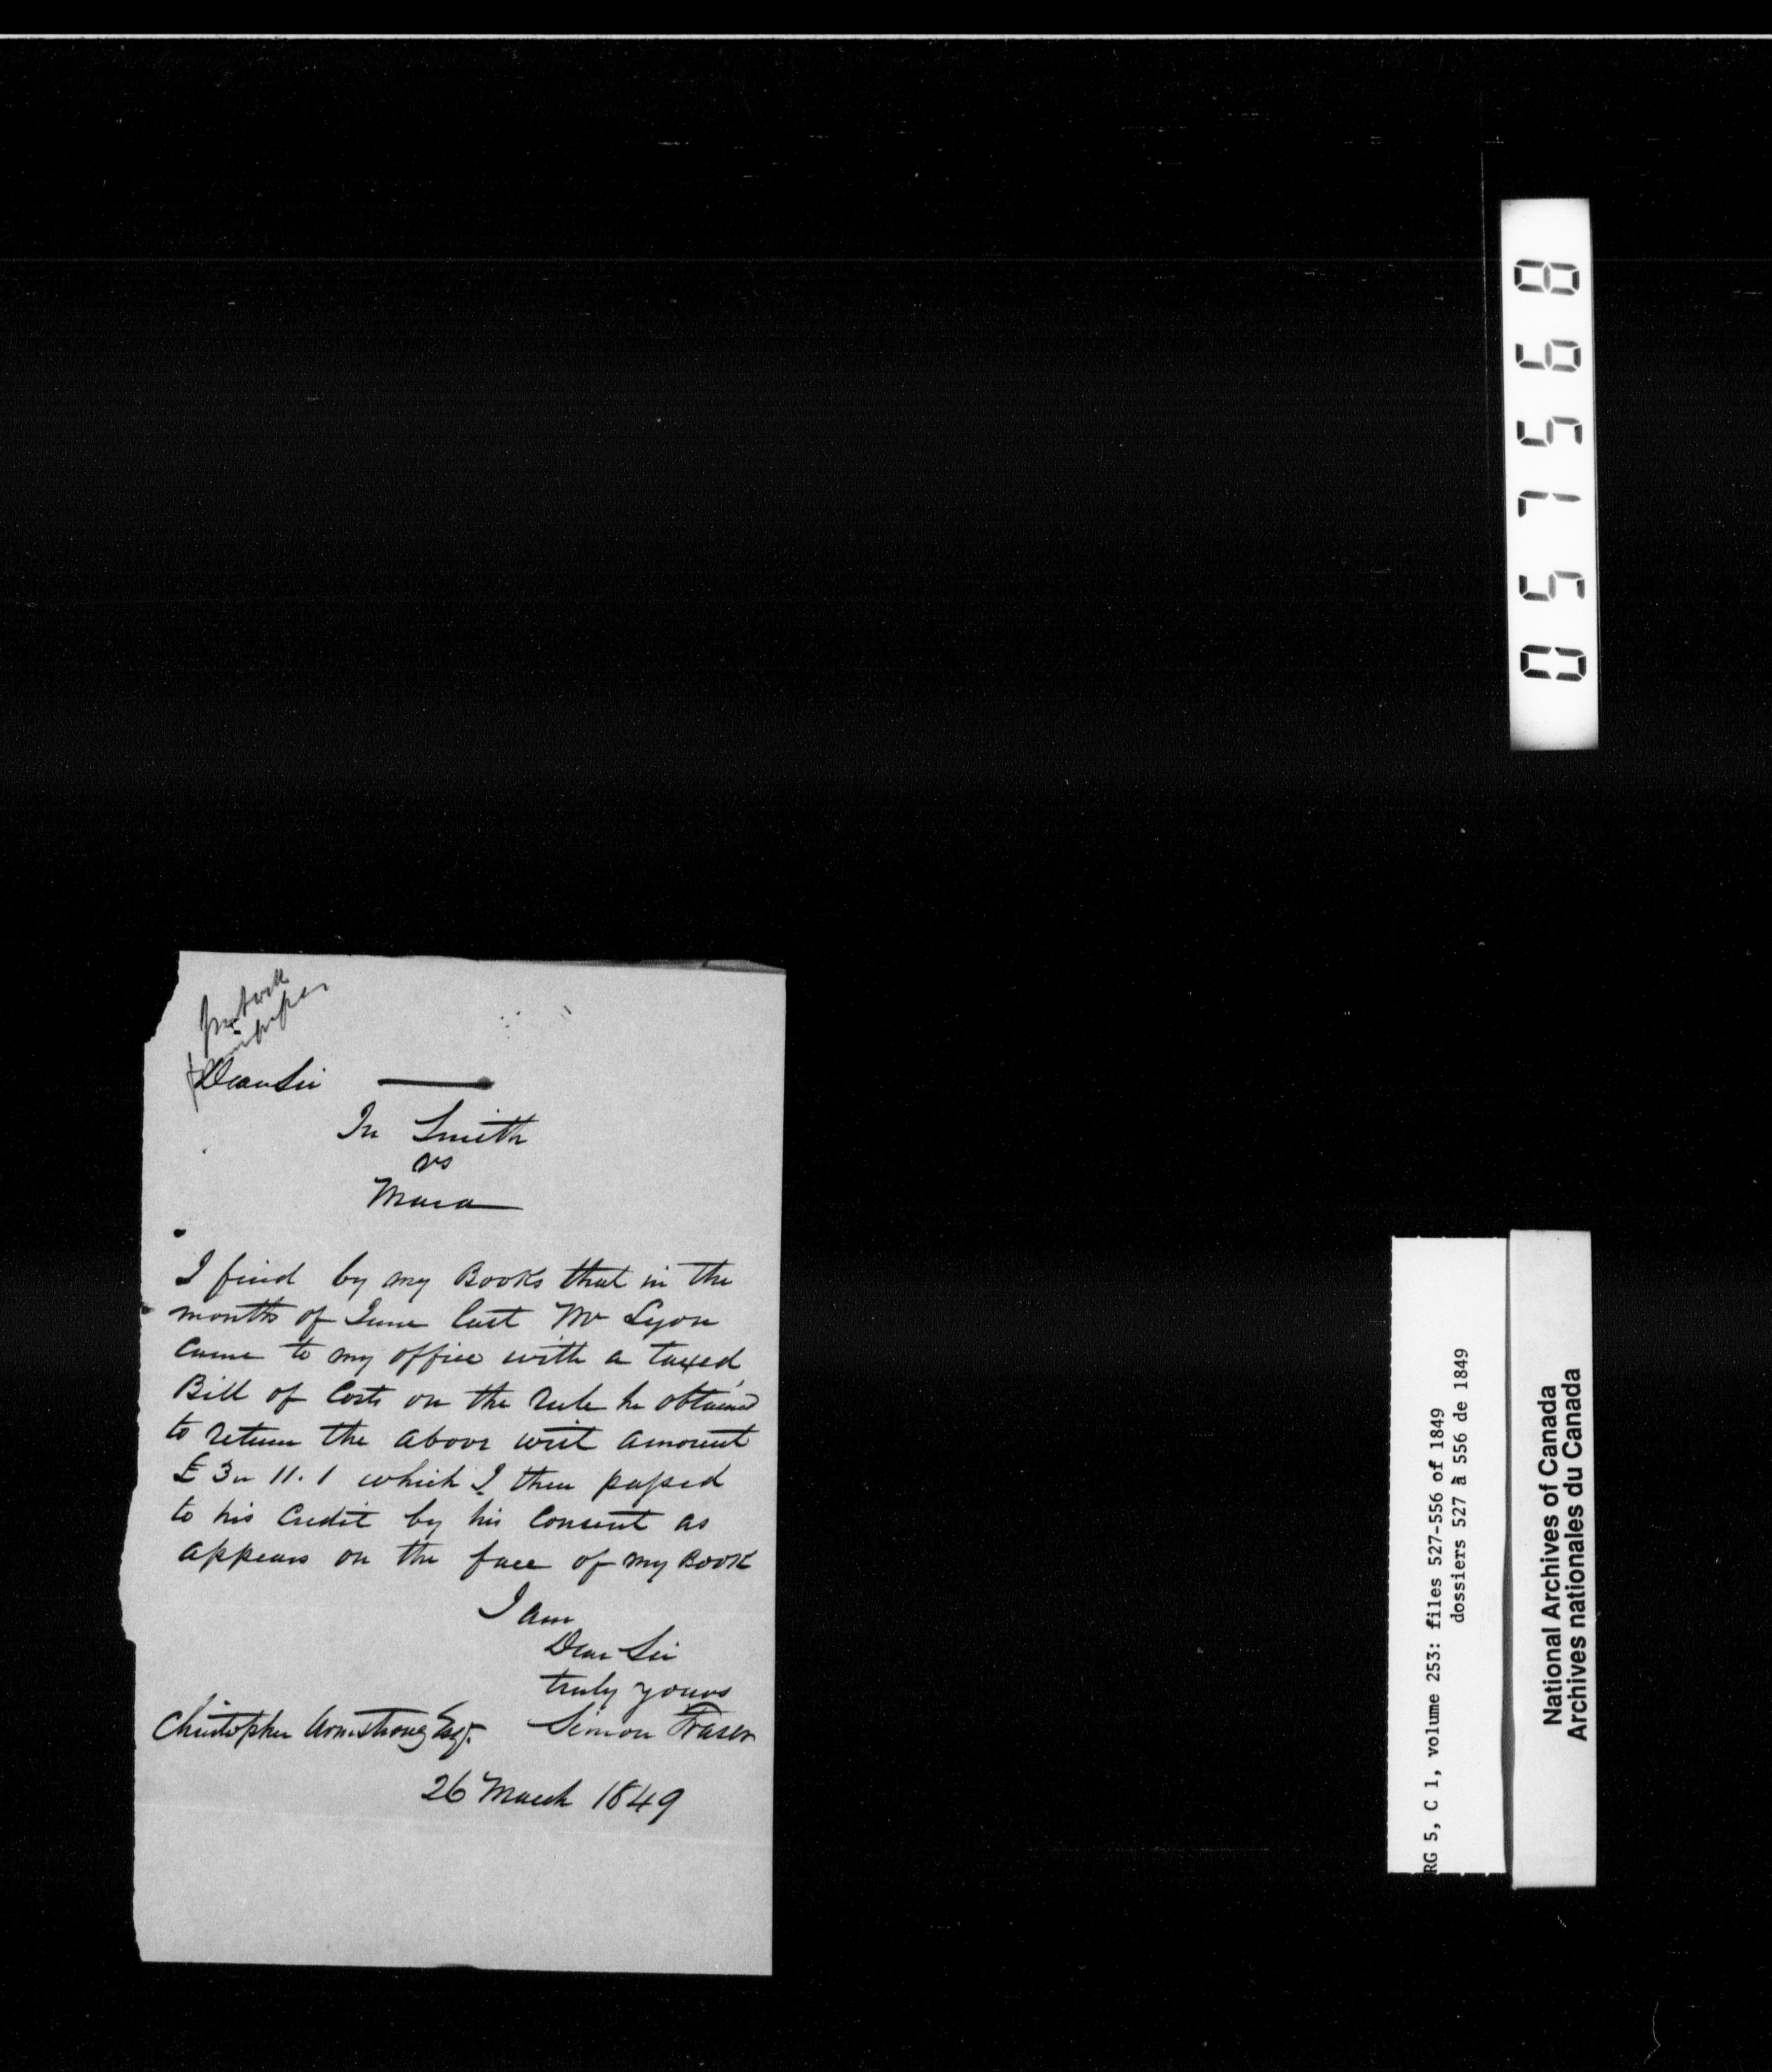 Dear Sir
In Smith
vs
Mara
I find by my Books that in the
month of June last Mr Lyon
came to my office with a taxed
Bill of Costs on the rule he obtained
to return the above writ amount
£ 3 " 11 . 1 which I then passed
to his Credit by his Consent as
appears on the face of my Book
I am
Dear Sir
truly yours
Christopher Armstrong Esqr. Simon Fraser
26 March 1849
057568
RG 5, C 1, volume 253: files 527-556 of 1849
dossiers 527 à 556 de 1849
National Archives of Canada
Archives nationales du Canada